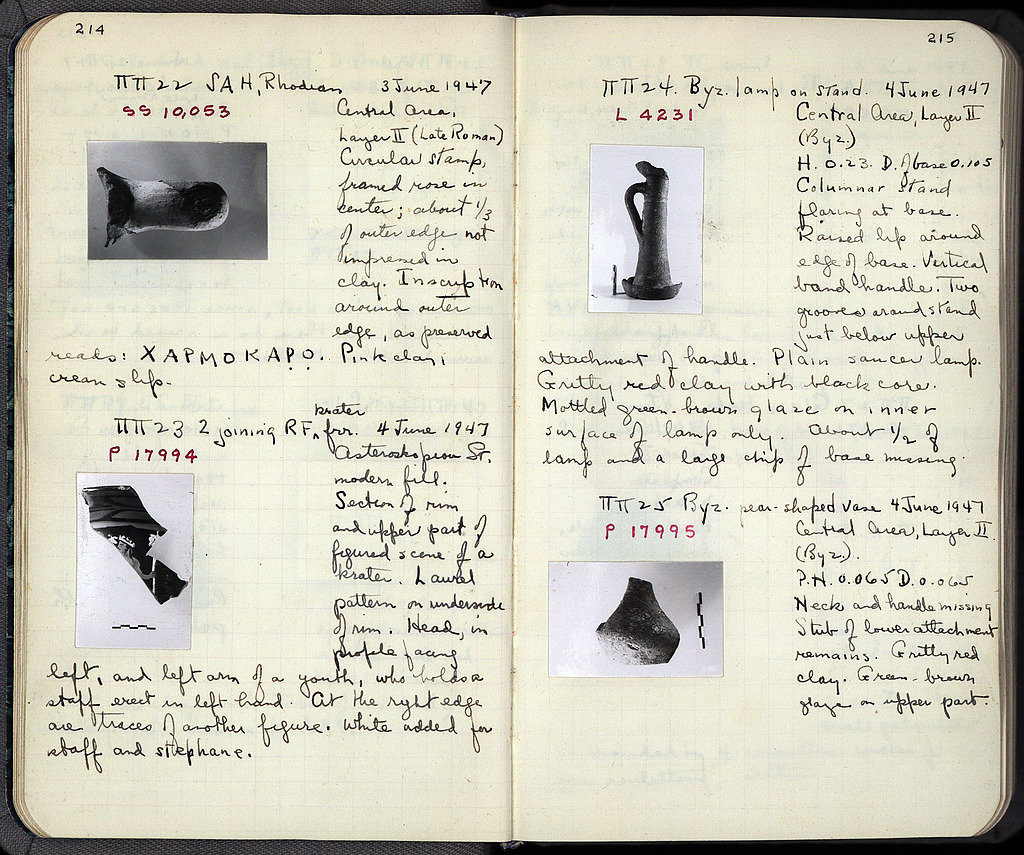 214
ΠΠ 22 SAH, Rhodian 3 June 1947
SS 10,053
Central Area,
Layer II (Late Roman)
Circular stamp,
framed rose in
center; about 1/3
of outer edge not
impressed in
clay. Inscription
around outer
edge, as preserved
reads: ΧΑΡΜΟΚΑΡΟ. Pink clay;
cream slip.
krater
ΠΠ 23 2 joining RF ‸ frr. 4 June 1947
P 17994
Asteroskopiou St.
modern fill.
Section of rim
and upper part of
figured scene of a
krater. Laurel
pattern on underside
of rim. Head, in
profile facing
left, and left arm of a youth, who holds a
staff erect in left hand. At the right edge
are traces of another figure. White added for
staff and stephane.
215
ΠΠ 24. Byz. lamp on stand. 4 June 1947
L 4231
Central Area, Layer II
(Byz.)
H. 0.23. D. of base 0.105
Columnar stand
flaring at base.
Raised lip around
edge of base. Vertical
band handle. Two
grooves around stand
just below upper
attachment of handle. Plain saucer lamp.
Gritty red clay with black core.
Mottled green-brown glaze on inner
surface of lamp only. About 1/2 of
lamp and a large chip of base missing.
ΠΠ 25 Byz. pear-shaped vase 4 June 1947
P 17995
Central Area, Layer II
(Byz.).
P.H. 0.065 D. 0.065
Neck and handle missing
Stub of lower attachment
remains. Gritty red
clay. Green-brown
glaze on upper part.